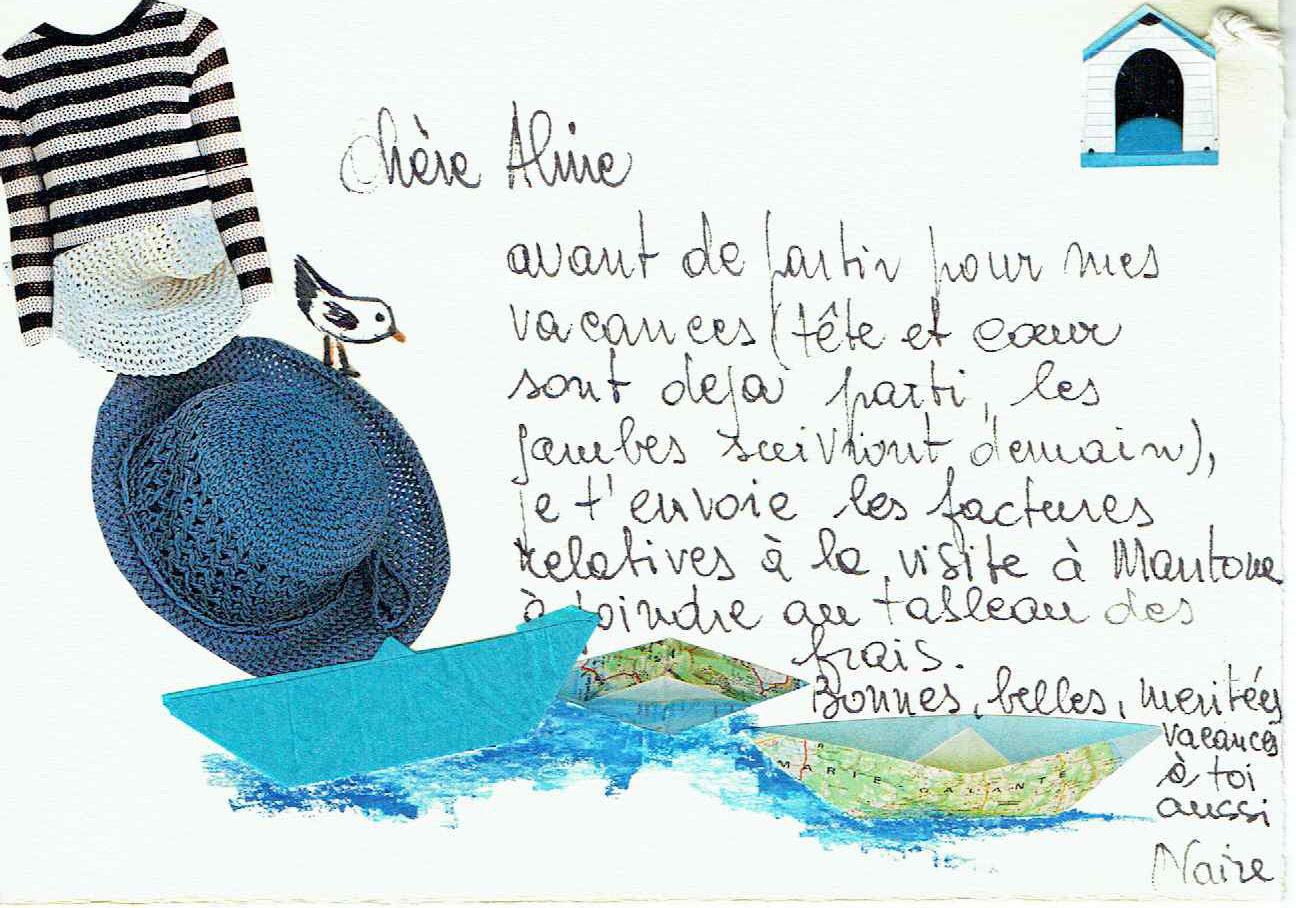 chère Aline
avant de partir pour mes
vacances (tête et cœur
sont dejà parti, les
jambes suivront demain),
je t'envoie les factures
relatives à la visite à Mantoue
à joindre au tableau des
frais.
Bonnes, belles, meritées
vacances
à toi
aussi
MARIE-GALANTE